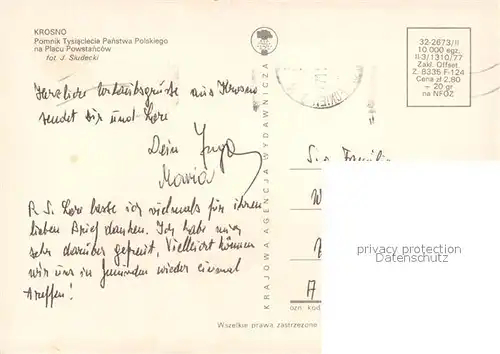 KROSNO
Pomnik Tysiąclecia Państwa Polskiego
na Placu Powstańców
fot. J. Siudecki
32-2673/II
10.000 egz.
II-3/1310/77
Zakł. Offset
Z. 8335 F-124
Cena zł 2,80
+ 20 gr
na NFOZ
Herzliche Urlaubsgrüße aus Krosno
sendet Dir und Lore
Dein Jurga
Maria
P.S. Lore laste ich vielmals für ihren
lieben Brief danken. Ich habe mich
sehr darüber gefreut. Vielleicht können
wir uns in Gemünden wieder einmal
treffen!
KRAJOWA AGENCJA WYDAWNICZA
Familie
privacy protection
ozn kod
Wszelkie prawa zastrzeżone